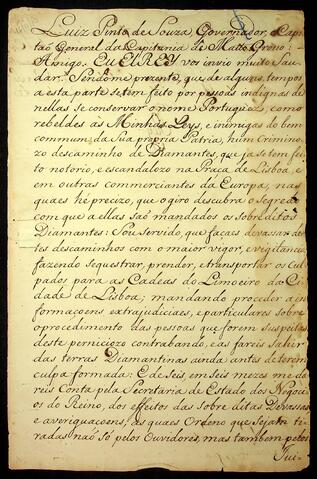 Luiz Pinto de Souza, Governador, e Capi-
tão General da Capitania de Matto Groso:
Amigo. EU ELREY vos invio muito Sau-
dar. Sendome prezente, que de alguns tempos
a esta parte se tem feito por pessoas indignas de
nellas se conservar o nome Portuguez, como
rebeldes ás Minhas Leys, e inimigas do bem
commum da Sua propria Patria, hum Crimino-
zo descaminho de Diamantes, que ja se tem fei-
to notorio, e escandalozo na Praça de Lisboa, e
em outras commerciantes da Europa, nas
quaes he precizo, que o giro descubra o segredo
com que a ellas saõ mandados os sobreditos
Diamantes: Sou servido, que façaes devassar des-
tes descaminhos com o maior vigor, e vigitancia,
fazendo sequestrar, prender, e transportar os Cul-
pados para as Cadeas do Limoeiro da Ci-
dade de Lisboa; mandando proceder a in-
formaçoens extrajudiciaes, e particulares sobre
o procedimento das pessoas que forem suspeitas
deste perniciozo contrabando, e as fareis Sahir
das terras Diamantinas ainda antes de terem
culpa formada: E de seis, em seis mezes me da-
reis Conta pela Secretaria de Estado dos Negoci-
os do Reino, dos effeitos das sobre ditas Devassas
e averiguacoens, as quaes Ordeno que sejam ti-
radas naõ só pelos Ouvidores, mas tambem pelos
Jui-